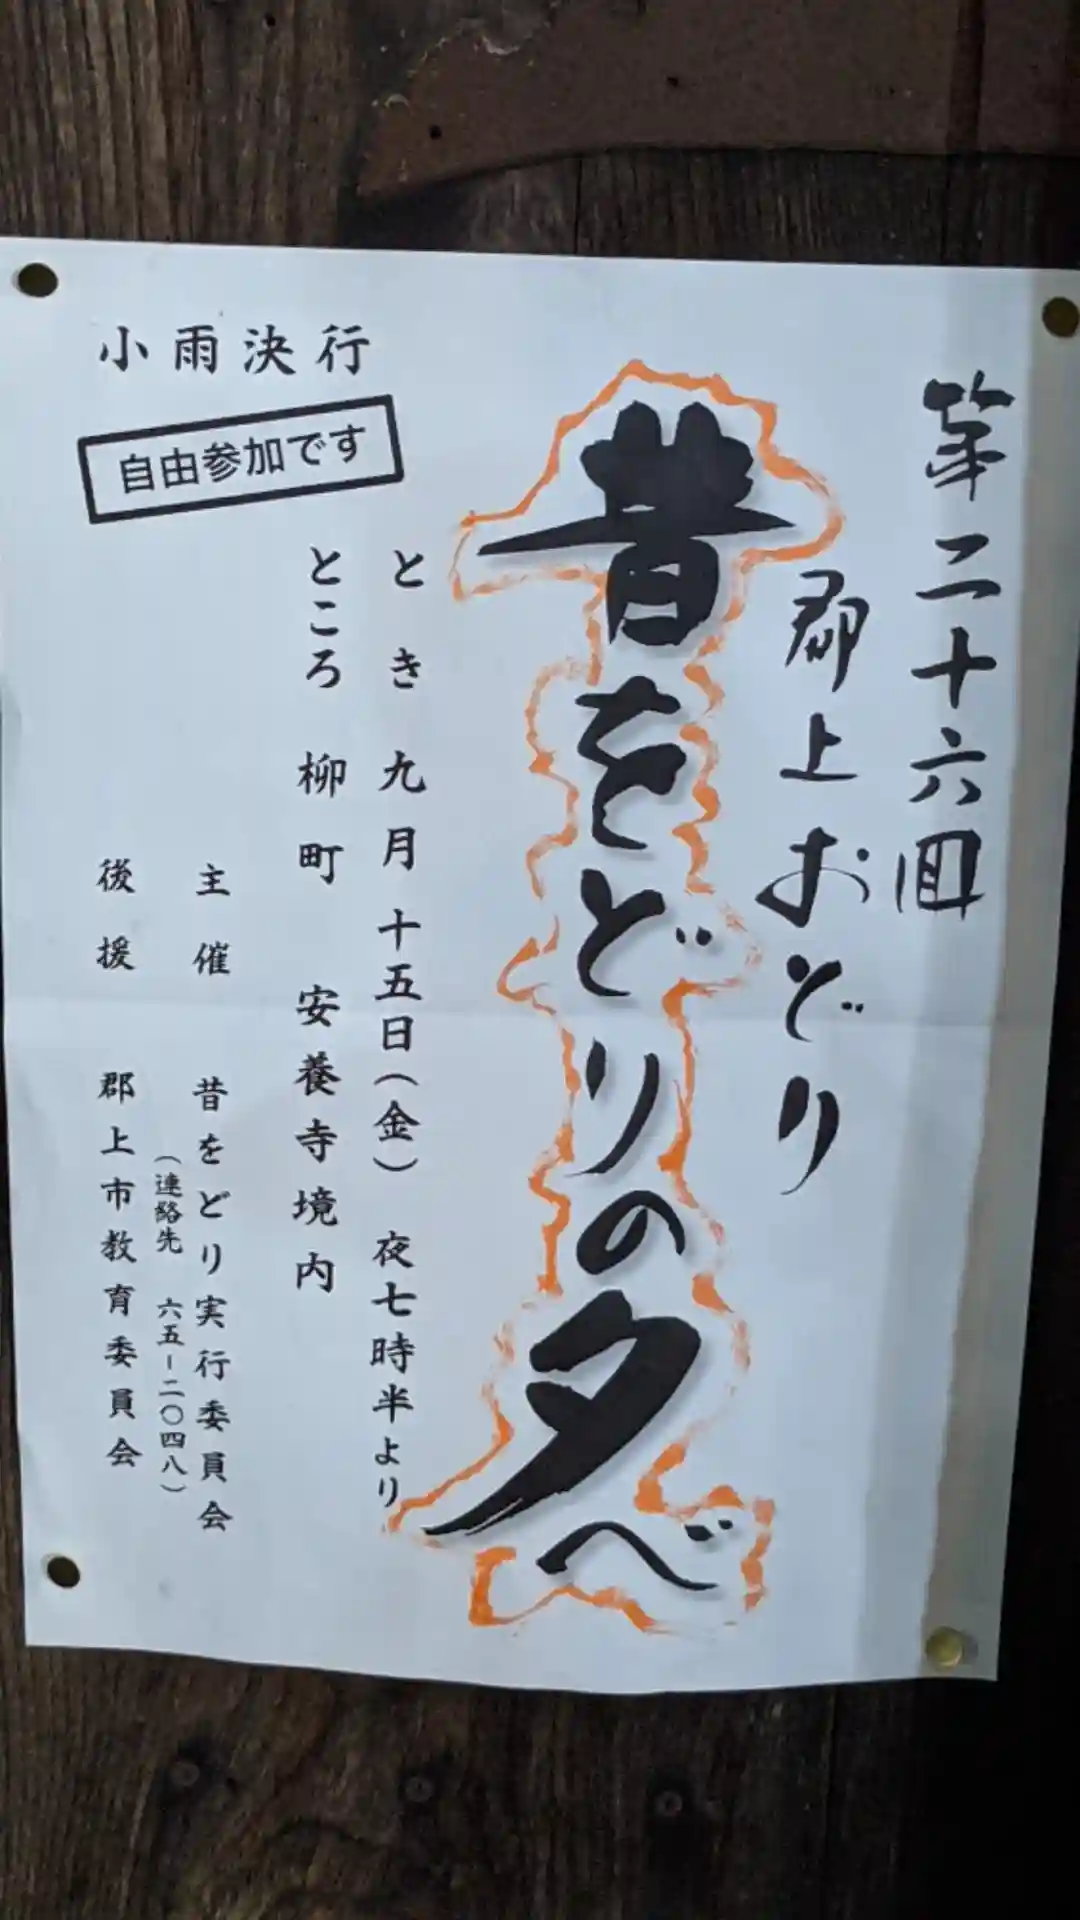 第二十六回
郡上おどり
昔をどりの夕べ
とき 九月十五日(金) 夜七時半より
ところ 柳町 安養寺境内
小雨決行
自由参加です
主催 昔をどり実行委員会
(連絡先 六五-二〇四八)
後援 郡上市教育委員会